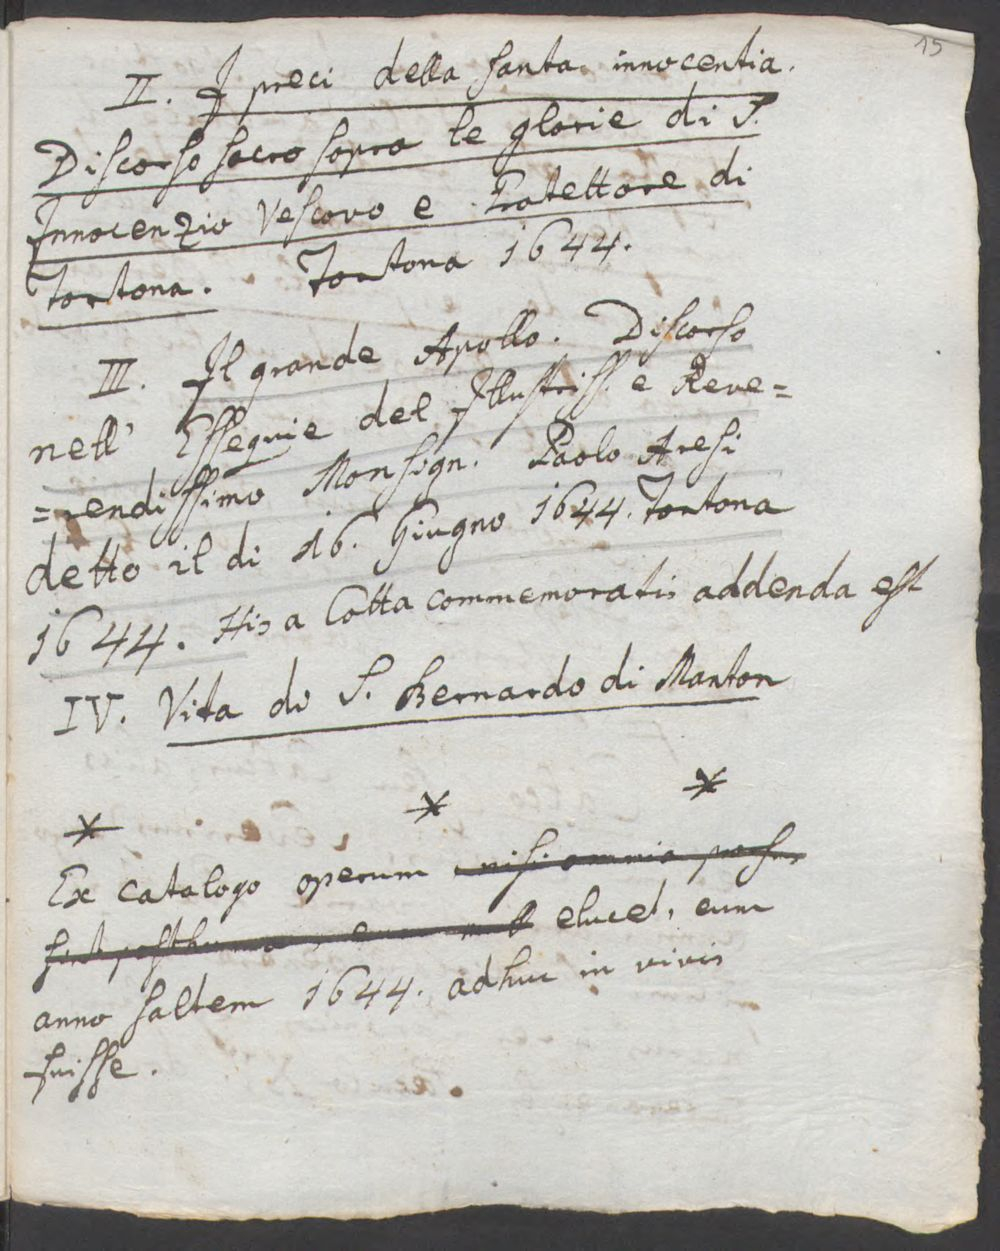 15
II. I preci della santa innocentia.
Discorso sacro sopra le glorie di S.
Innocenzio Vescovo e Protettore di
Tortona. Tortona 1644.
III. Il grande Apollo. Discorso
nell' Essequie del Illustriss. e Reve=
=rendissimo Monsign. Paolo Aresi
detto il di 16. Giugno 1644. Tortona
1644. His a Cotta commemoratis addenda est
IV. Vita di S. Bernardo di Manton
* * *
Ex catalogo operum nisi omnia
elucet, eum
anno saltem 1644. adhuc in vivis
fuisse.